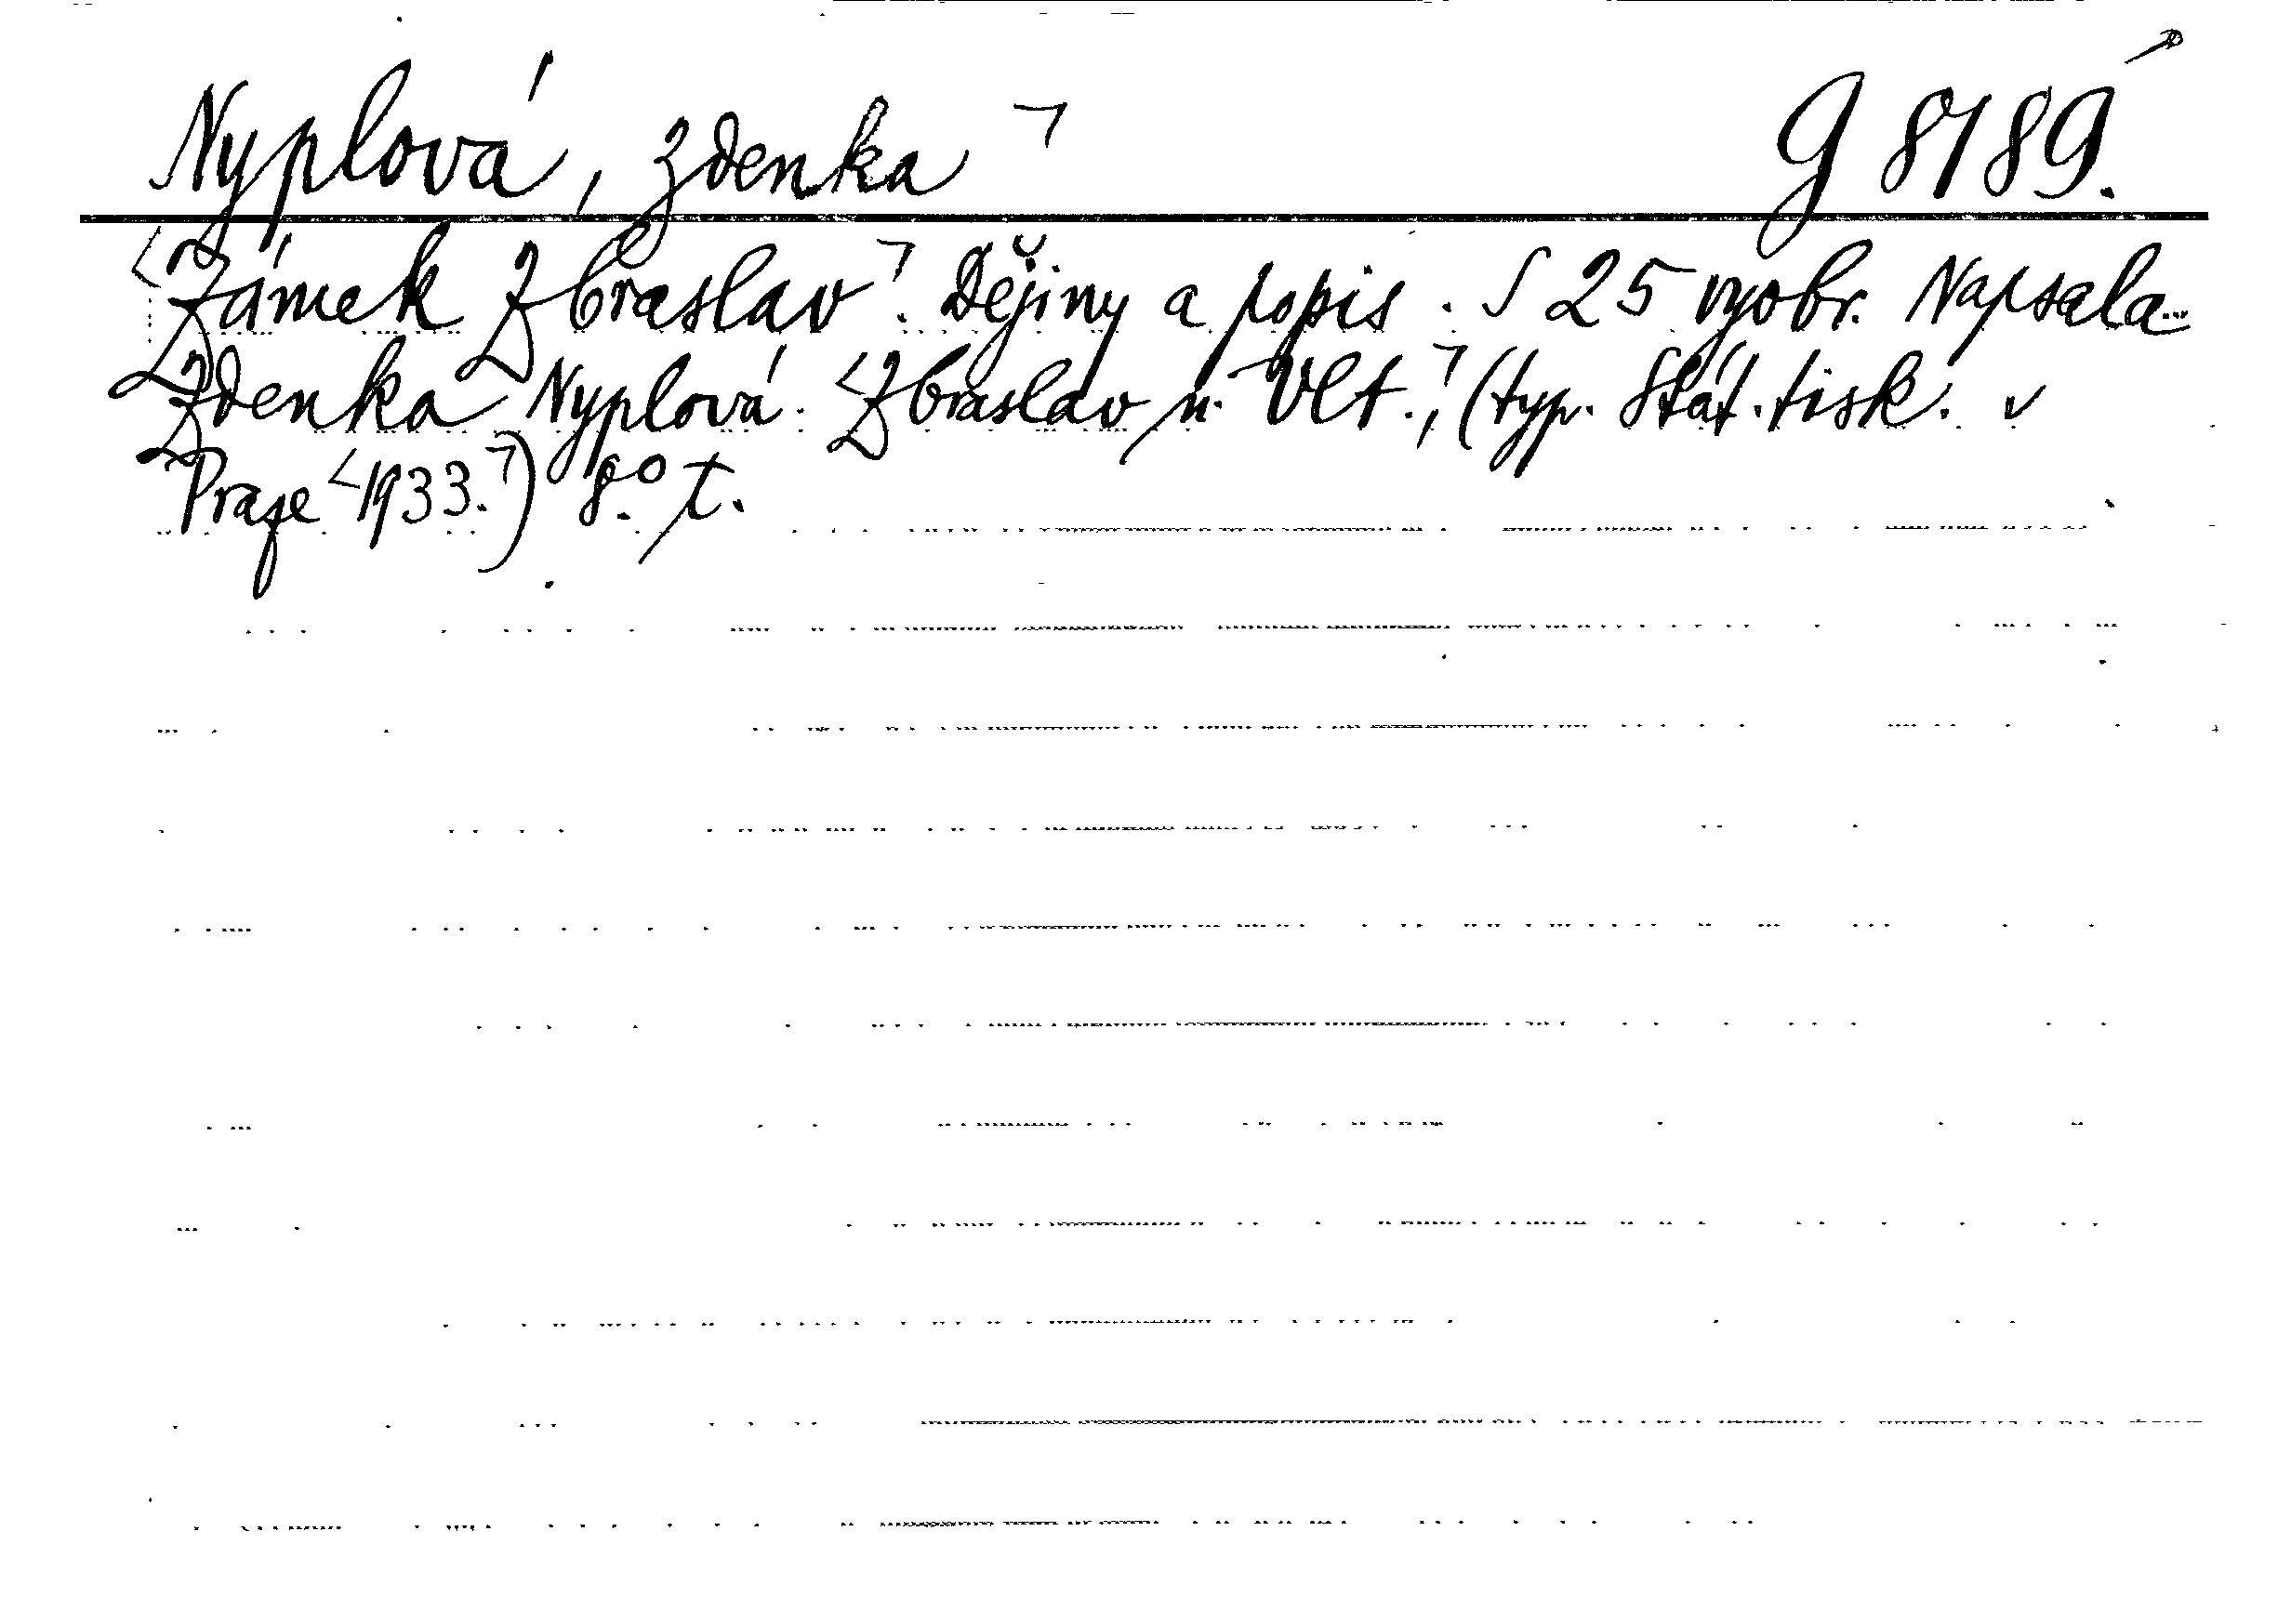 Nyplová, Zdenka ¬ G 8189.
<Zámek Zbraslav¬. Dějiny a popis. S 25 vyobr. Napsala
Zdenka Nyplová. <Zbraslav n. Vlt.,¬ (typ. Stát. tisk. v
Praze <1933.¬) 8.° t.